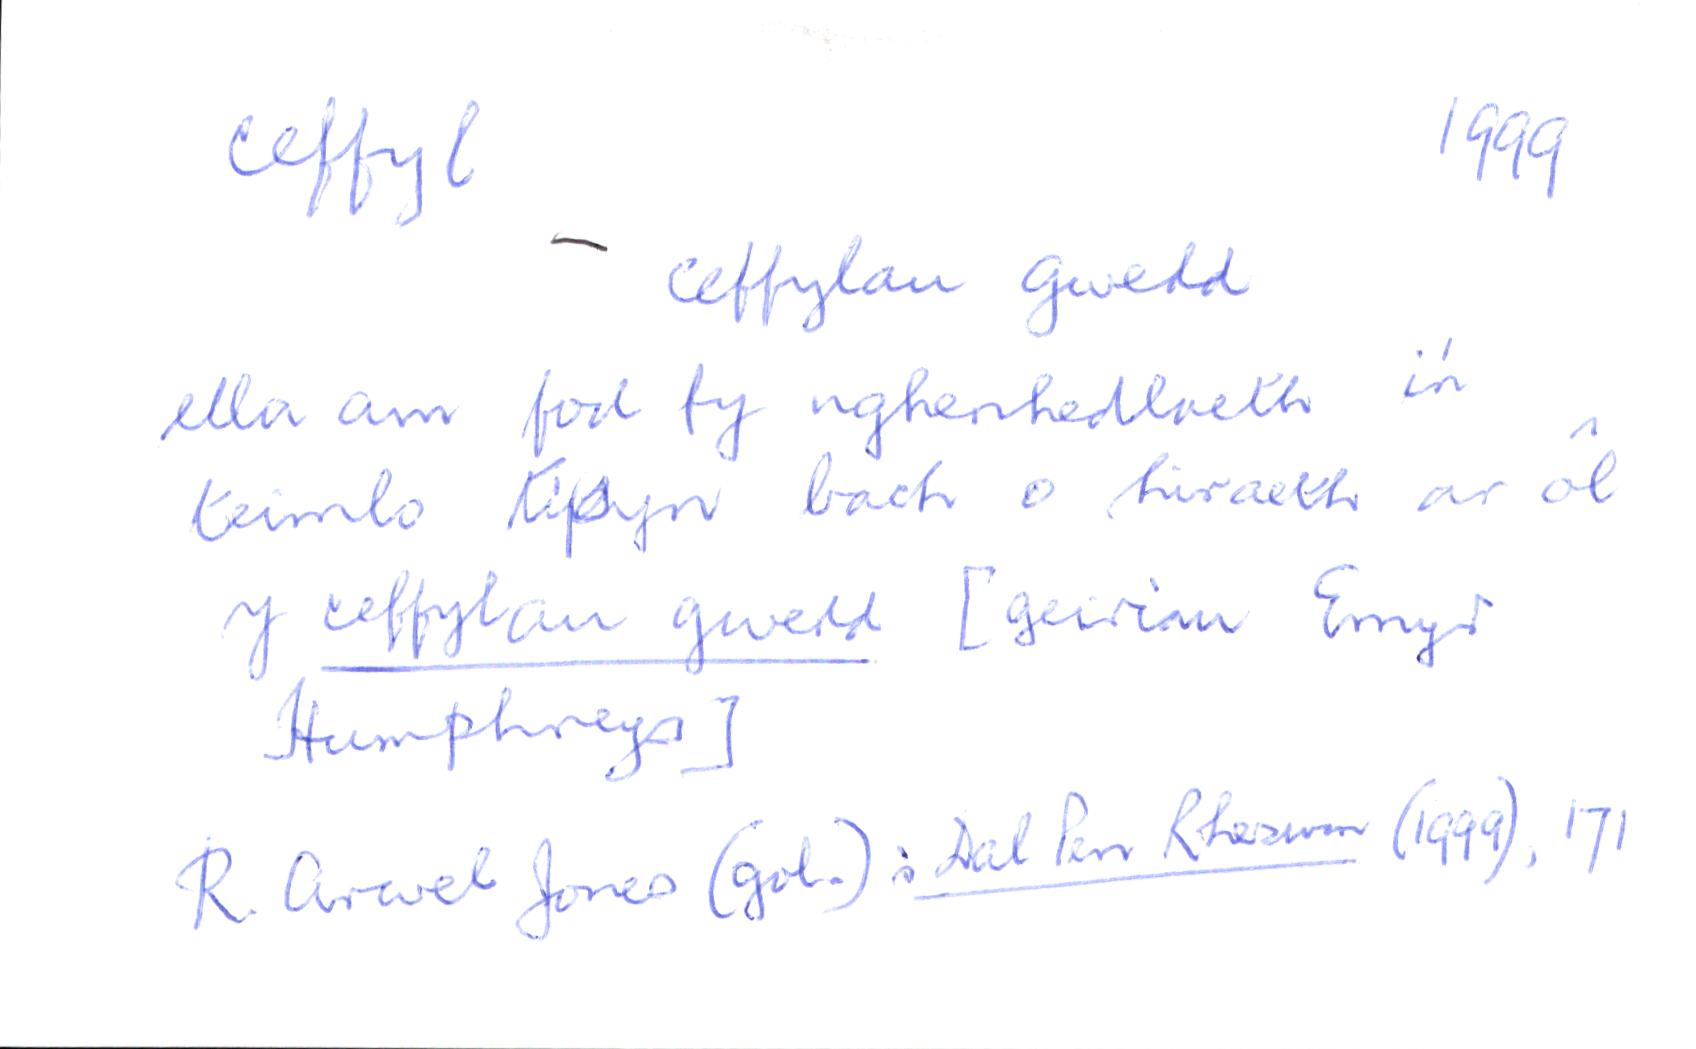 ceffyl 1999
– ceffylau gwedd
ella am fod fy nghenhedlaeth i'n
teimlo tipyn bach o hiraeth ar ôl
y ceffylau gwedd [geiriau Emyr
Humphreys]
R. Arwel Jones (gol.): Dal Pen Rheswm (1999), 171